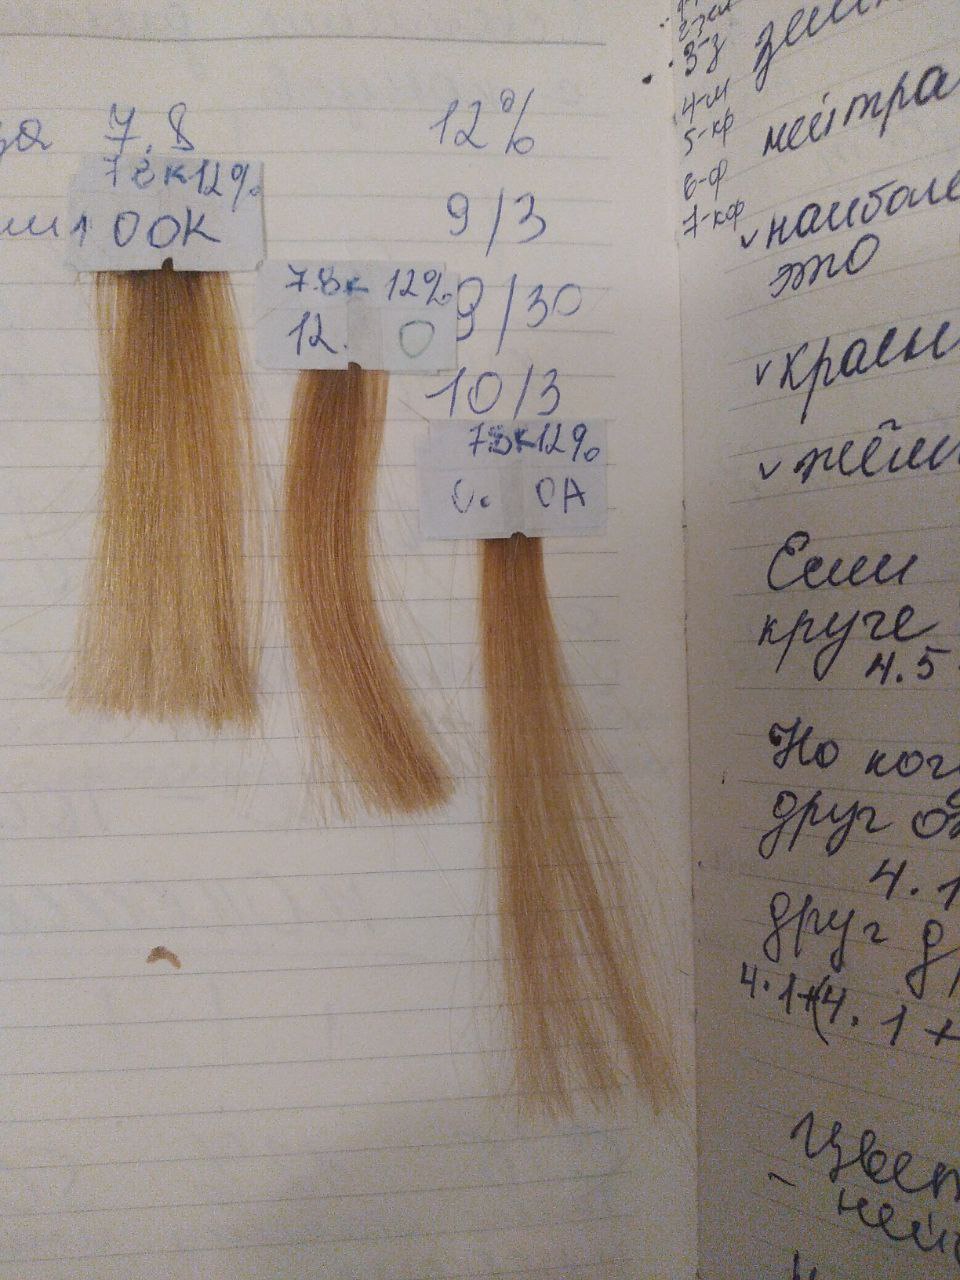 7.8
12%
7 8к 12%
9/3
00К
7.8к 12%
9/30
12. 0
10/3
7 8к 12%
0. 0А
3-з
4-м
5-кр
6-ф
7-кф
нейтра
наиболе
это
красн
Если
круге
4.5
Но ког
друг
4.1
друг
4.1+(4.1+
Цвет